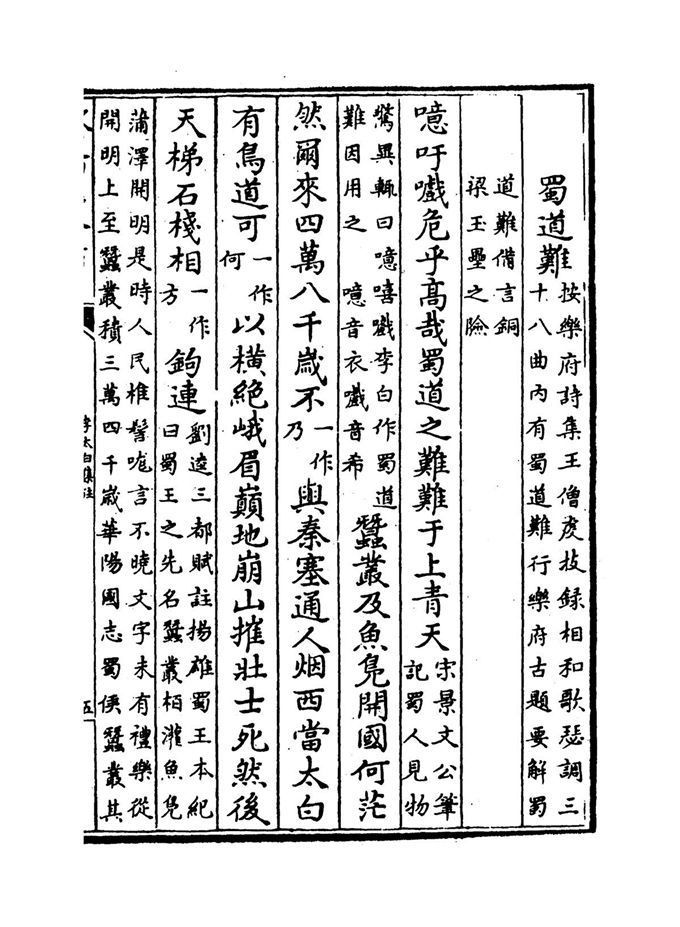 蜀道難按樂府詩集王僧虔技録相和歌瑟調三
十八曲内有蜀道難行樂府古題要解蜀
道難備言銅
梁玉壘之險
噫吁嚱危乎高哉蜀道之難難于上青天宋景文公筆
記蜀人見物
驚異輒曰噫嘻嚱李白作蜀道
難因用之 噫音衣嚱音希
蠶叢及魚鳬開國何茫
然爾來四萬八千歳不一作乃與秦塞通人烟西當太白
有鳥道可一作何以橫絶峨眉巔地崩山摧壯士死然後
天梯石棧相一作方鉤連劉逵三都賦註揚雄蜀王本紀
曰蜀王之先名蠶叢栢灌魚鳬
蒲澤開明是時人民椎髻咙言不曉文字未有禮樂從
開明上至蠶叢積三萬四千歳華陽國志蜀侯蠶叢其
李太白集注
五